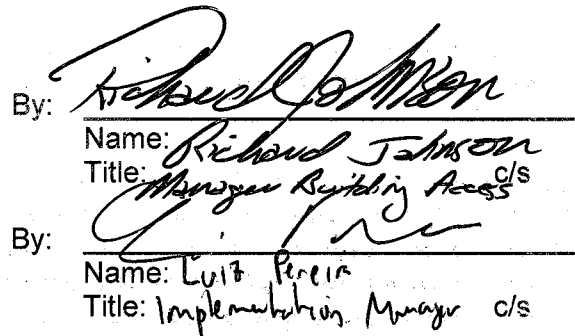 By: Richard Johnson
Name: Richard Johnson
Title: Manager Building Access c/s
By:
Name: Luiz Pereira
Title: Implementation Manager c/s